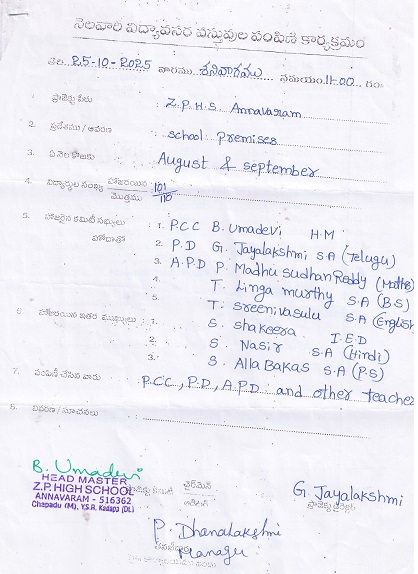 నెలవారి విద్యావసర వస్తువుల పంపిణి కార్యక్రమం
తేది 25-10-2025 వారము శనివారము సమయం 11-00 గం
1. ప్రాజెక్టు పేరు : Z.P.H.S. Annavaram
2. ప్రదేశము / ఆవరణ : school premises
3. ఏ నెల కొఱకు : August & september
4. విద్యార్థుల సంఖ్య హాజరయిన 101
మొత్తము 110
5. హాజరైన కమిటీ సభ్యులు : 1. P.C.C B. Umadevi H.M
హోదాతో 2. P.D G. Jayalakshmi S.A (Telugu)
3. A.P.D P. Madhu sudhan Reddy (Maths)
4. T. Linga murthy S.A (B.S)
5. T. Sreenivasulu S.A (English
6. హాజరయిన ఇతర ముఖ్యులు : 1. S. shakeera I.E.D
2. S. Nasir S.A (Hindi)
3. S. Alla Bakas S.A (P.S)
7. పంపిణీ చేసిన వారు : P.C.C, P.D, A.P.D and other teache
8. వివరణ / సూచనలు :
B. Umadevi
HEAD MASTER
Z.P. HIGH SCHOOL
ANNAVARAM - 516362
Chapadu (M), Y.S.R. Kadapa (Dt.)
ప్రాజెక్టు కమిటీ చైర్‌మెన్
G. Jayalakshmi
ప్రాజెక్టు డైరెక్టర్
P. Dhanalakshmi
Manager